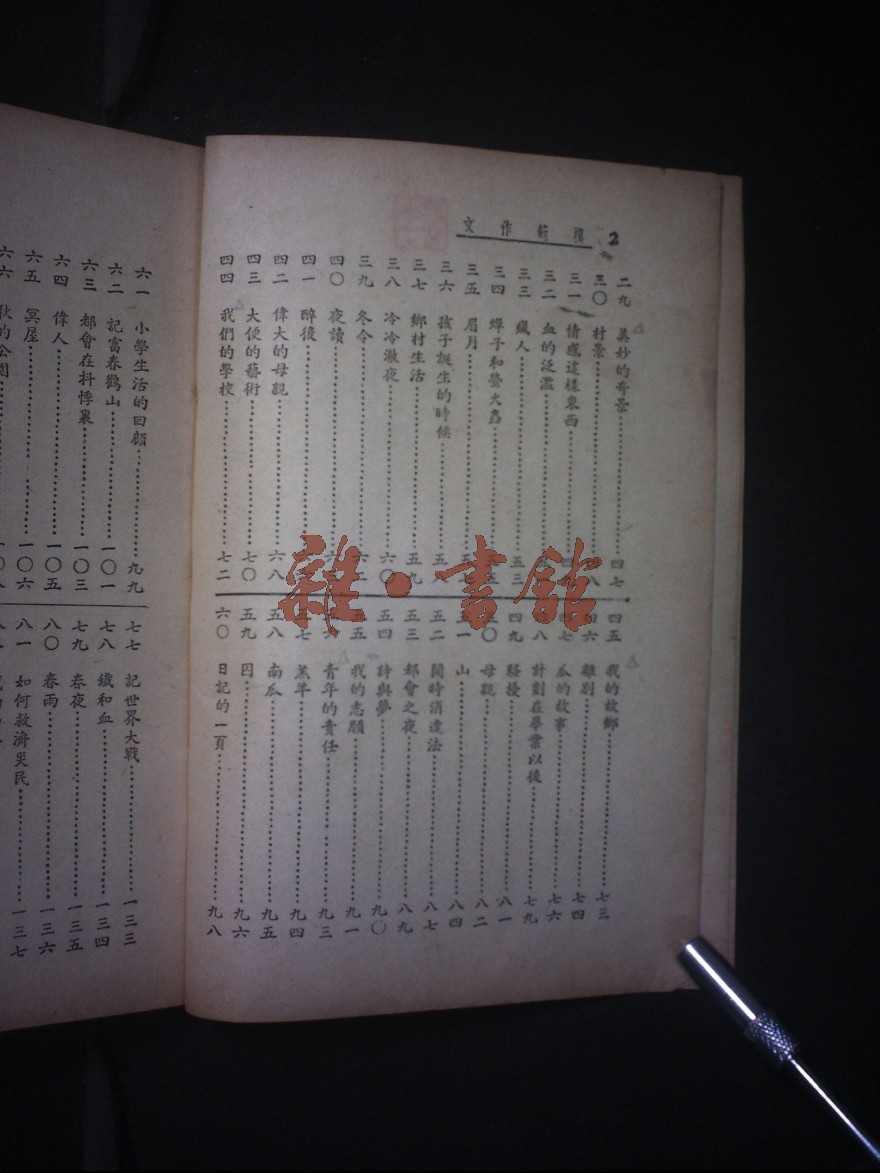 2 模範作文
二九 美妙的奇景 四七
三〇 村景 八
三一 情感這樣東西
三二 血的泛濫
三三 瘋人 五三
三四 蟬子和螢火蟲 五
三五 眉月 五
三六 孩子誕生的時候 五
三七 鄉村生活 五九
三八 冷冷澈夜 六〇
三九 冬令 六
四〇 夜讀 六
四一 醉後
四二 偉大的母親 六八
四三 大便的藝術 七〇
四四 我們的學校 七二
四五 我的故鄉 七三
四六 離別 七四
四七 瓜的故事 七六
四八 計劃在畢業以後 七九
四九 騷擾 八一
五〇 母親 八二
五一 山 八四
五二 閒時消遣法 八七
五三 都會之夜 八九
五四 詩與夢 九〇
五五 我的志願 九一
五六 青年的責任 九三
五七 羔羊 九四
五八 南瓜 九五
五九 囚 九六
六〇 日記的一頁 九八
六一 小學生活的回顧 九九
六二 記富春鸛山 一〇一
六三 都會在抖悸裏 一〇三
六四 偉人 一〇五
六五 冥屋 一〇六
六六 秋的公園 一〇八
七七 記世界大戰 一三三
七八 鐵和血 一三四
七九 春夜 一三五
八〇 春雨 一三六
八一 如何救濟災民 一三七
雜·書館